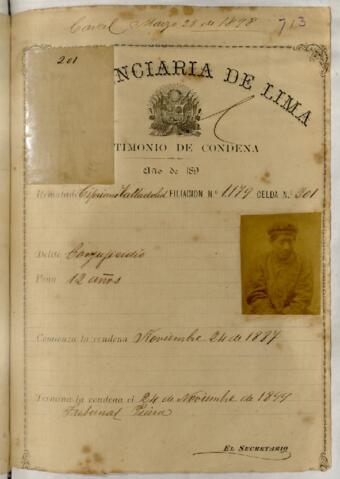 Carcel Marzo 28 de 1898 713
201
NCIARIA DE LIMA
TIMONIO DE CONDENA
Año de 189
Rematado Cipriano Valladolid FILIACION N.º 1179 CELDA N.º 201
Delito Conyugicidio
Pena 12 años
Comienza la condena Noviembre 24 de 1887
Termina la condena el 24 de Noviembre de 1899
Tribunal Piura
EL SECRETARIO